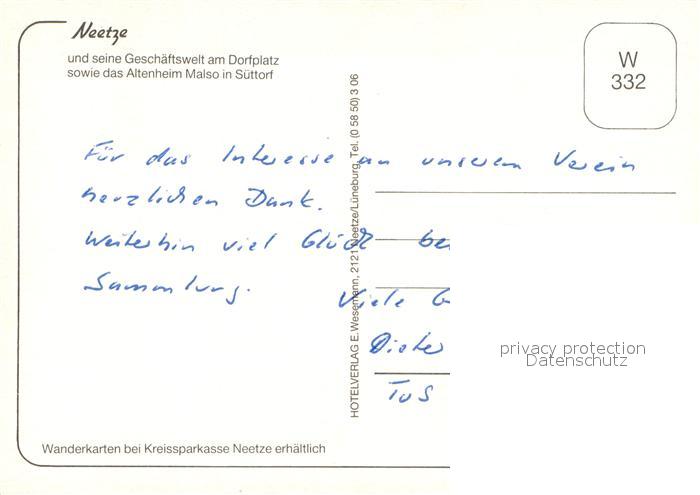 Neetze
und seine Geschäftswelt am Dorfplatz
sowie das Altenheim Malso in Süttorf
W
332
Für das Interesse an unserem Verein
herzlichen Dank.
Weiterhin viel Glück be
Sammlung.
Viele G
Dieter
TuS
HOTELVERLAG E. Wesemann, 2121 Neetze/Lüneburg, Tel. (0 58 50) 3 06
privacy protection
Datenschutz
Wanderkarten bei Kreissparkasse Neetze erhältlich